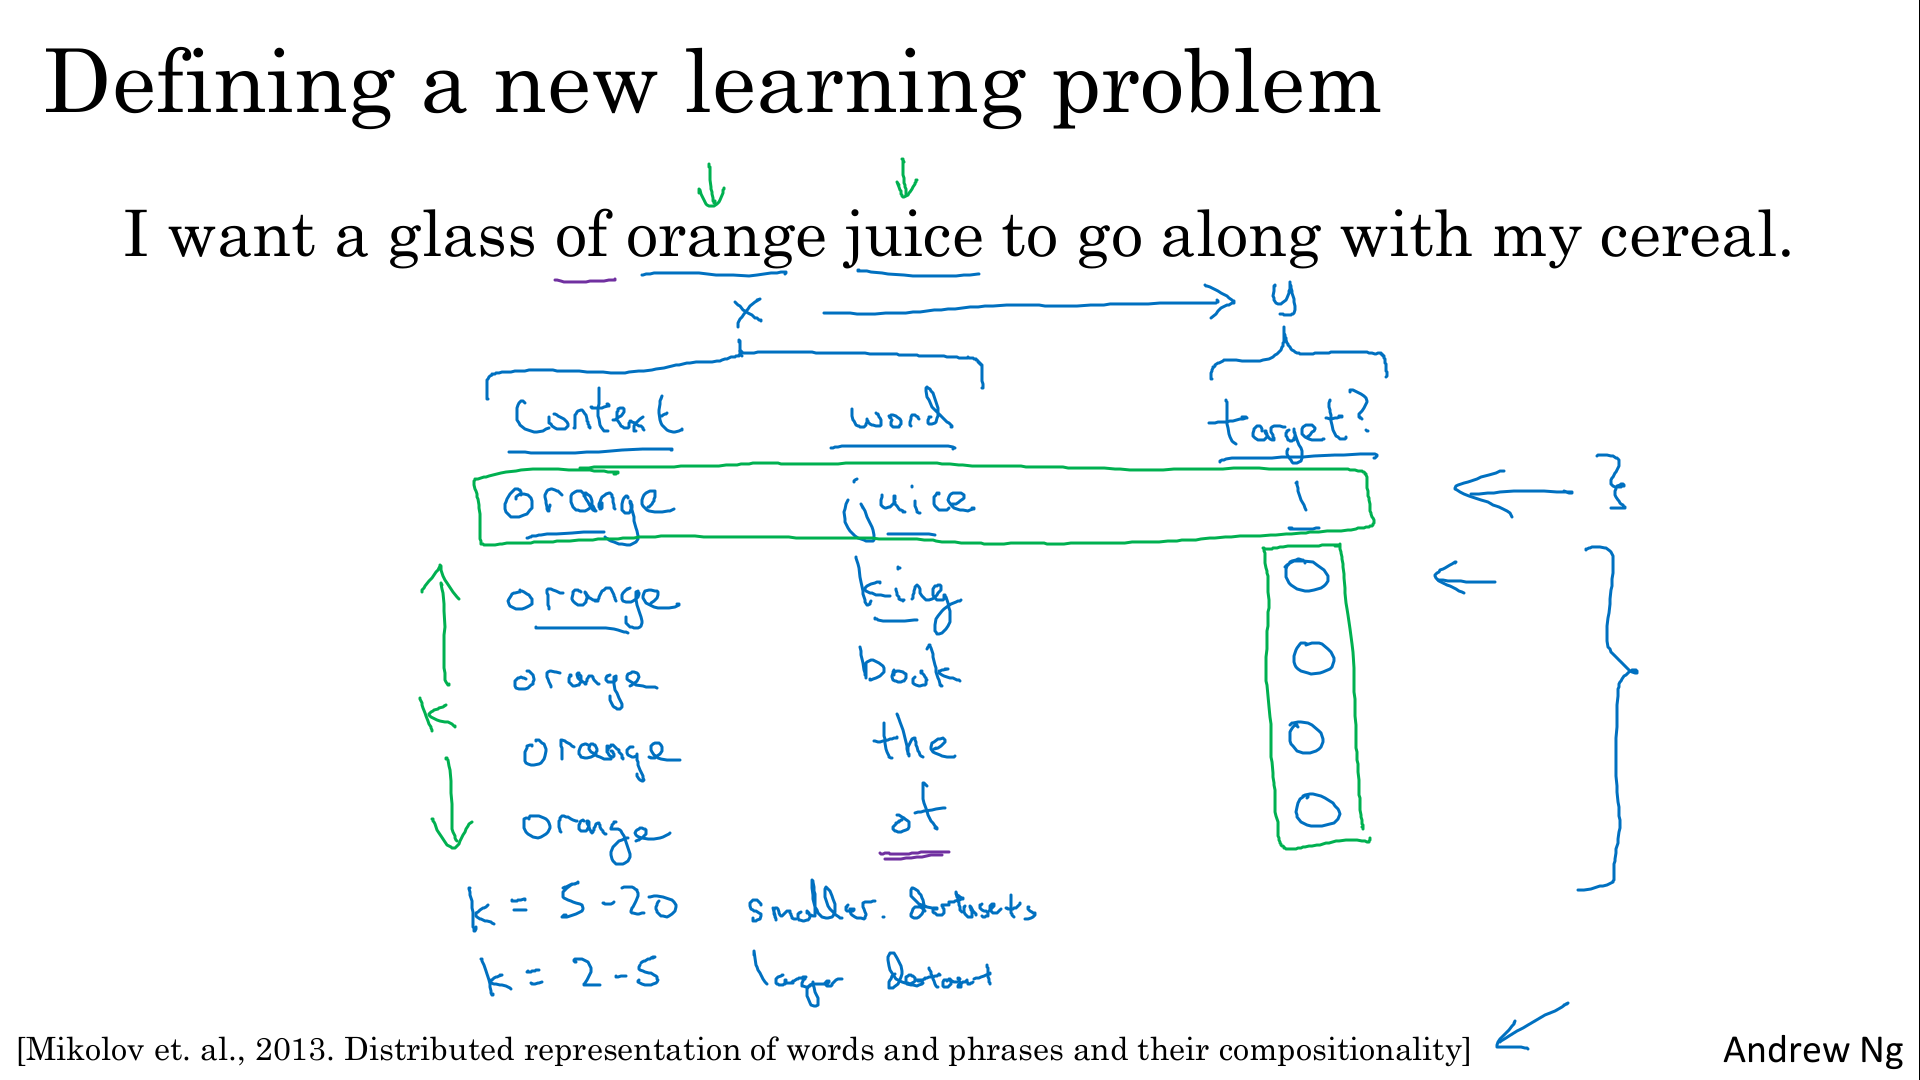 Defining a new learning problem
I want a glass of orange juice to go along with my cereal.
x → y
Context word target?
orange juice 1
orange king 0
orange book 0
k
orange the 0
orange of 0
k = 5-20 smaller. datasets
k = 2-5 larger dataset
[Mikolov et. al., 2013. Distributed representation of words and phrases and their compositionality]
Andrew Ng